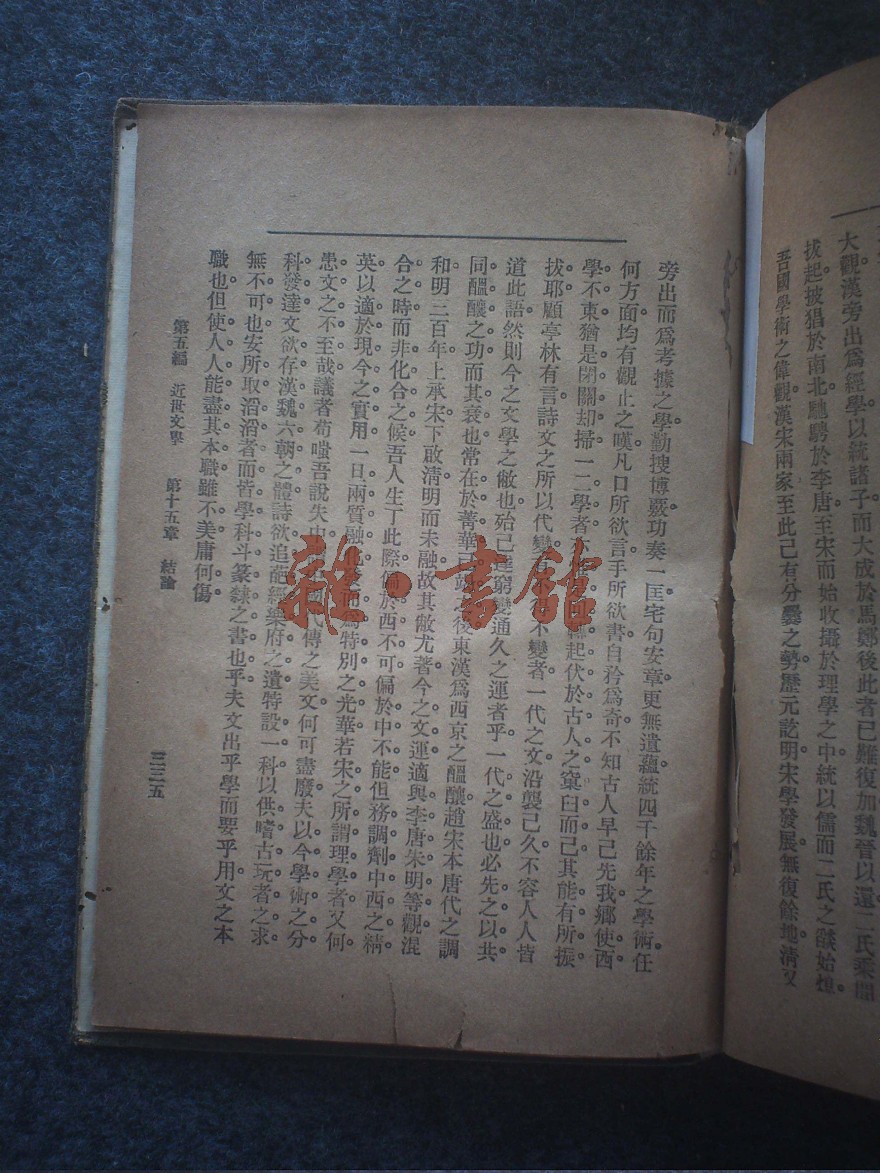 大觀漢旁出爲經學以統諸子而大成於馬鄭後此者已難復加魏晉以還二氏乘間
拔起披猖於南北馳騁於李唐至宋而始收攝於理學之中統以儒而二氏之燄始熄
吾國學術之偉觀漢宋兩家至此已有分釁之勢歷元訖明宋學發展無復餘地清又
旁出而爲考據之學勤搜博覈功奏一匡宅句安章更無遺蘊統四千餘年之學術任
何方面均有觀止之嘆凡口所欲言手所欲書自矜爲奇不知古人早已先我鄉使西
學不東猶是閉關却掃一二學者起伏於古人之窠臼而已其能有所振
拔耶顧亭林有言詩文之所以代變不變者一代之文沿襲已久不容人人皆
道此語然則今之文學之敝也殆已達窮變通久之運者乎一代之盛也必先之以共
同醞釀之功而其衰也常在於菁華已竭之後東漢爲西京之醞釀趙宋本唐代之調
和明三百年上承宋下啟清明而未融故其敝尤著今之文運適與李唐朱明等觀混
合之時而非化合之候吾人生丁此際偏於西不可偏於中不能但務調劑中西之精
英以適於現今之實用一日兩質融化爲特別之光華若宋之所謂理學者又何
患文之不至哉議者苟嗤吾說失中代傳之美文何可盡廢夫以今學術之分
科發達文欲存漢魏六朝之體詩欲追葩經樂府之遺特設一科以供嗜古玩者之求
無不可也安所取滔滔者而皆學科斗篆隸之書也乎夫文出乎學而要乎用文之本
職也但使人人能盡其本職雖不美庸何傷
第五編 近世文學 第十五章 結論
三三五
雜·書館